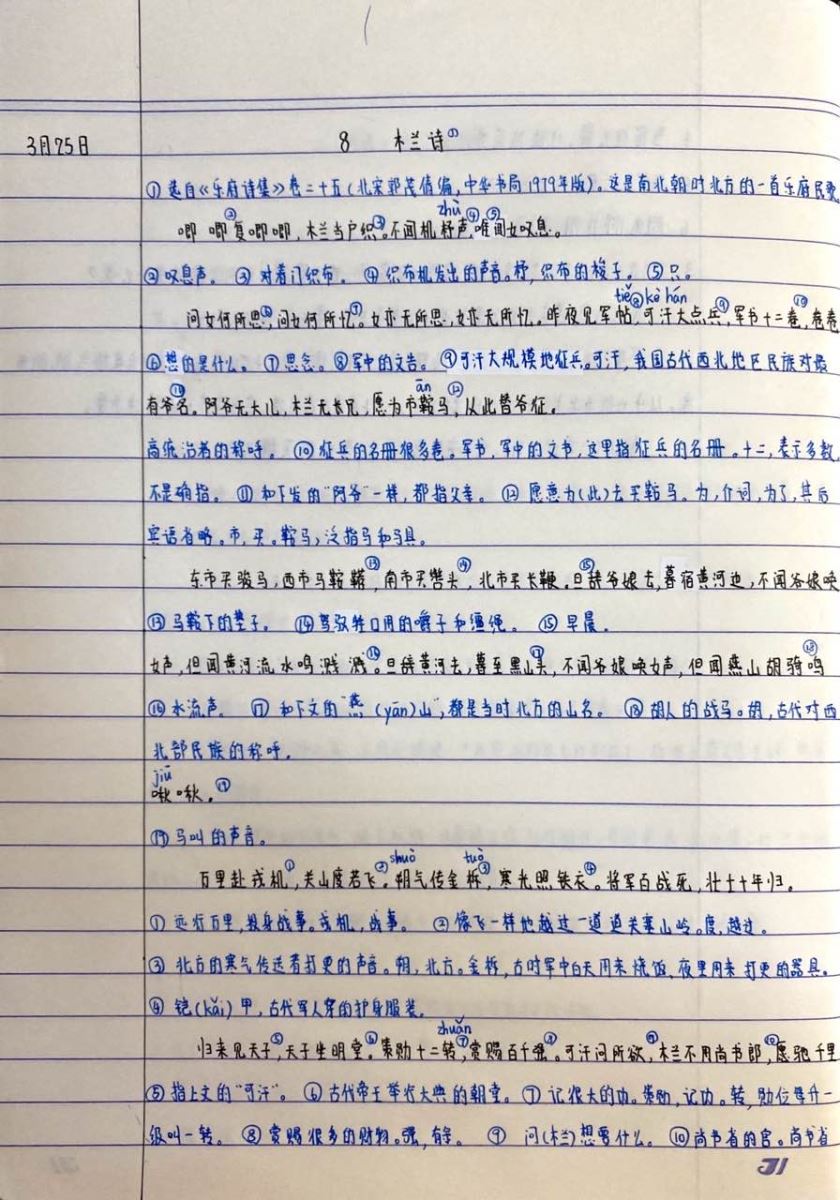 3月25日
8 木兰诗①
①选自《乐府诗集》卷二十五(北宋郭茂倩编,中华书局1979年版)。这是南北朝时北方的一首乐府民歌
zhù
唧唧②复唧唧,木兰当户织③。不闻机杼声④,唯⑤闻女叹息。
②叹息声。 ③对着门织布。 ④织布机发出的声音。杼,织布的梭子。 ⑤只。
tiě kè hán
问女何所思⑥,问女何所忆⑦。女亦无所思,女亦无所忆。昨夜见军帖⑧,可汗大点兵⑨,军书十二卷⑩,卷卷
⑥想的是什么。 ⑦思念。 ⑧军中的文告。 ⑨可汗大规模地征兵。可汗,我国古代西北地区民族对最
ān
有爷⑪名。阿爷无大儿,木兰无长兄,愿为市鞍马⑫,从此替爷征。
高统治者的称呼。 ⑩征兵的名册很多卷。军书,军中的文书,这里指征兵的名册。十二,表示多数,
不是确指。 ⑪和下发的“阿爷”一样,都指父亲。 ⑫愿意为(此)去买鞍马。为,介词,为了,其后
宾语省略。市,买。鞍马,泛指马和马具。
东市买骏马,西市马鞍鞯⑬,南市买辔头⑭,北市买长鞭。旦⑮辞爷娘去,暮宿黄河边,不闻爷娘唤
⑬马鞍下的垫子。 ⑭驾驭牲口用的嚼子和缰绳。 ⑮早晨。
女声,但闻黄河流水鸣溅溅⑯。旦辞黄河去,暮至黑山⑰头,不闻爷娘唤女声,但闻燕山胡骑⑱鸣
⑯水流声。 ⑰和下文的“燕(yān)山”,都是当时北方的山名。 ⑱胡人的战马。胡,古代对西
北部民族的称呼。
jiū
啾啾。⑲
⑲马叫的声音。
shuò tuò
万里赴戎机①,关山度若飞②。朔气传金柝③,寒光照铁衣④。将军百战死,壮士十年归。
①远行万里,投身战事。戎机,战事。 ②像飞一样地越过一道道关塞山岭。度,越过。
③北方的寒气传送着打更的声音。朔,北方。金柝,古时军中白天用来烧饭、夜里用来打更的器具。
④铠(kǎi)甲,古代军人穿的护身服装。
zhuǎn
归来见天子⑤,天子坐明堂⑥。策勋十二转⑦,赏赐百千强⑧。可汗问所欲⑨,木兰不用尚书郎⑩,愿驰千里
⑤指上文的“可汗”。 ⑥古代帝王举行大典的朝堂。 ⑦记很大的功。策勋,记功。转,勋位每升一
级叫一转。 ⑧赏赐很多的财物。强,有余。 ⑨问(木兰)想要什么。 ⑩尚书省的官。尚书省